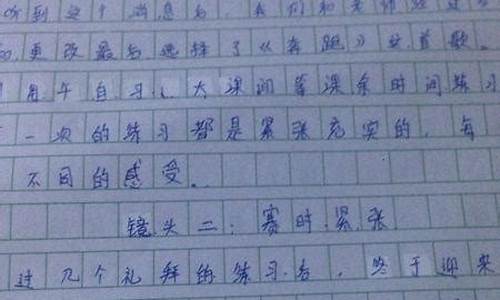 听到这个消息后,我们和老师经过
更改最后选择了《奔跑》这首歌。
用午自习、大课间等课余时间练习
一次的练习都是紧张充实的,每
不同的感受。
镜头二:赛时.紧张
过几个礼拜的练习后,终于迎来